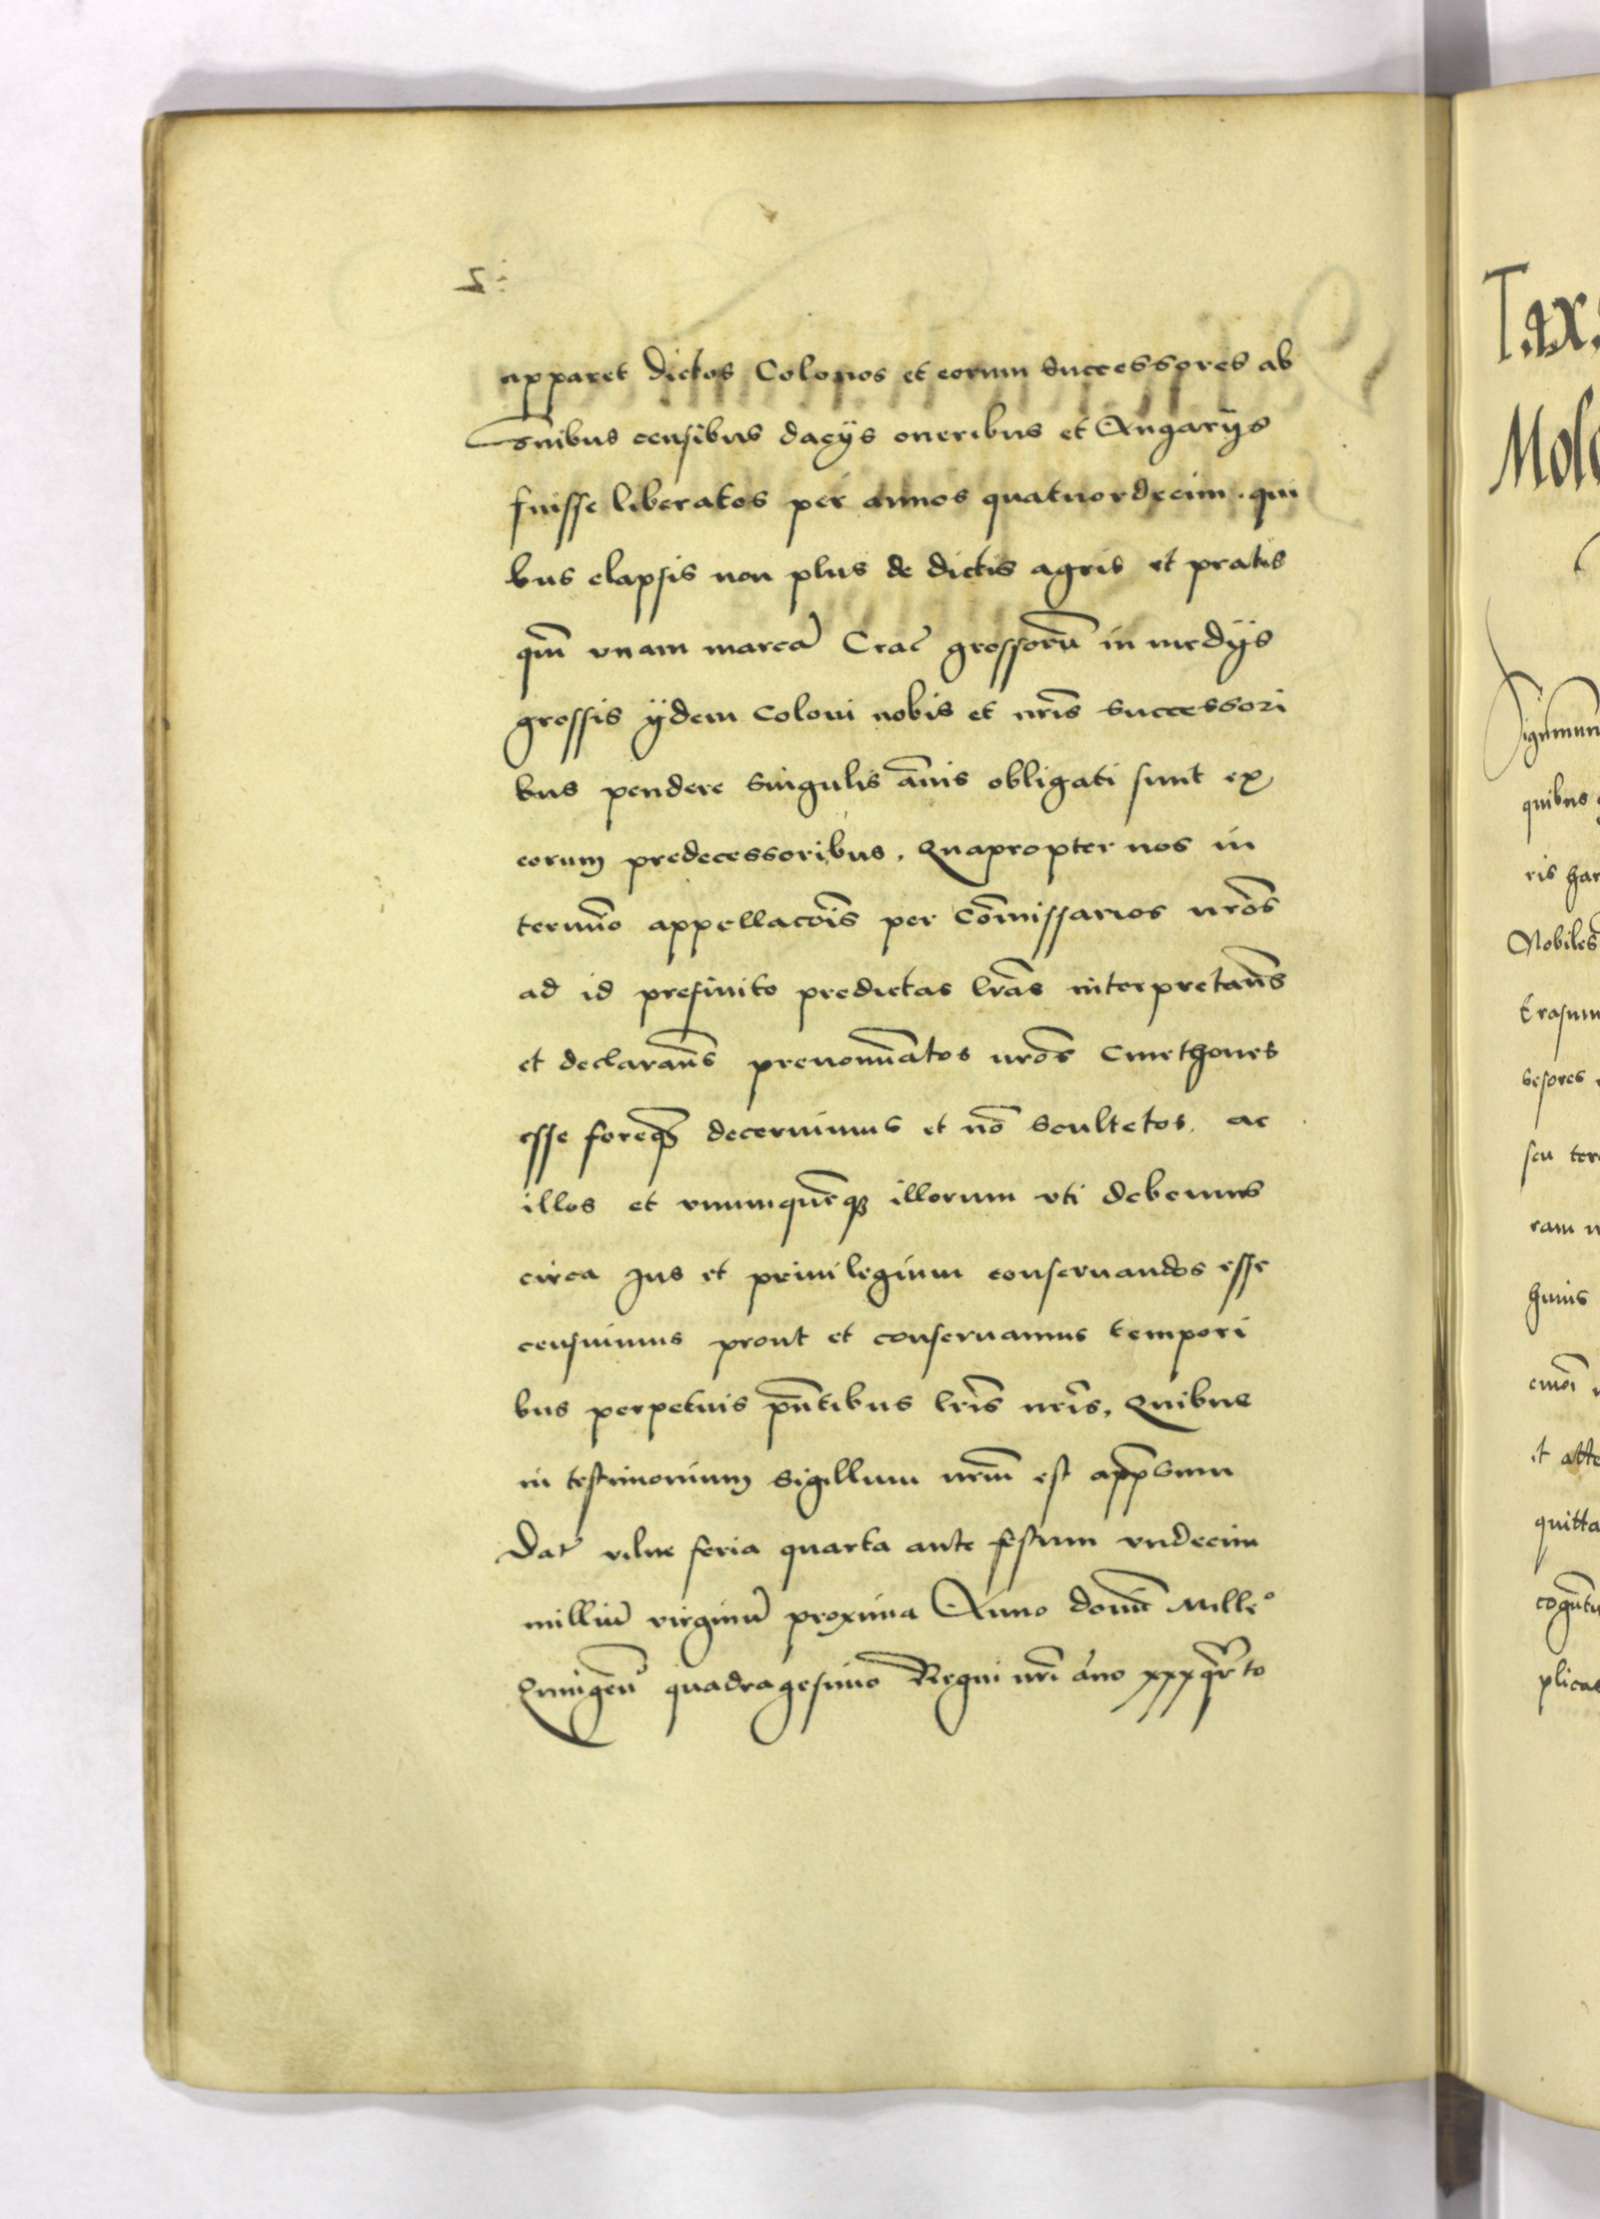 apparet dictos Colonos et eorum successores ab
om̄nibus censibus dacÿs oneribus et Angarÿs
fuisse liberatos per annos quatuordecim. qui
bus elapsis non plus de dictis agris et pratis
qm̄ vnam marcā Crac̄ grossorū in medÿs
grossis ÿdem coloni nobis et nr̄is successori
bus pendere singulis ānis obligati sunt ex
eorum predecessoribus. Quapropter nos in
termīo appellacōis per Com̄issarios nrōs
ad id prefinito predictas lrās interpretan̄s
et declaran̄s prenomīatos nrōs Cmethones
esse foreqꝫ decernimus et nō scultetos. ac
illos et vnumquēqꝫ illorum vti debemus
circa Jus et priuilegium conseruandos esse
censuimus prout et conseruamus tempori
bus perpetuis pn̄tibus lrīs nrīs. Quibus
in testimonium sigillum nrm̄ est app̄sum
Dat̄ vilne feria quarta ante festum vndecim
milliū virginū proxima Anno domī Mille°
Quingeñ quadragesimo Regni nrī āno xxxqr̄to
Tax
Mol
Sigismun
quibus
ris har
Nobiles
Erasmu
sesores
seu ter
ram
huius
it atte
quitta
plicas